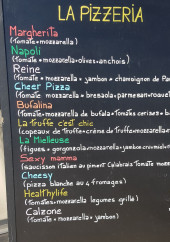 LA PIZZERIA
Margherita
(Tomate+mozzarella)
Napoli
(Tomate+mozzarella+olives+anchois)
Reine
(Tomate+mozzarella+jambon+champignon de Pa
Cheer Pizza
(Tomate mozzarella+bresaola+parmesan+roquet
Bufalina
(Tomate+mozzarella di bufala+Tomates cerises+b
La Truffe c'est chic
(copeaux de truffe+crème de truffe+mozzarella+
La Mielleuse
(figues+gorgonzola+mozzarella+jambon cru+miel+
Sexy mamma
(saucisson italien au piment Calabrais Tomate mozza
Cheesy
(pizza blanche au 4 fromages)
Healthylife
(Tomates+mozzarella légumes grillé)
Calzone
(Tomate+mozzarella+jambon)